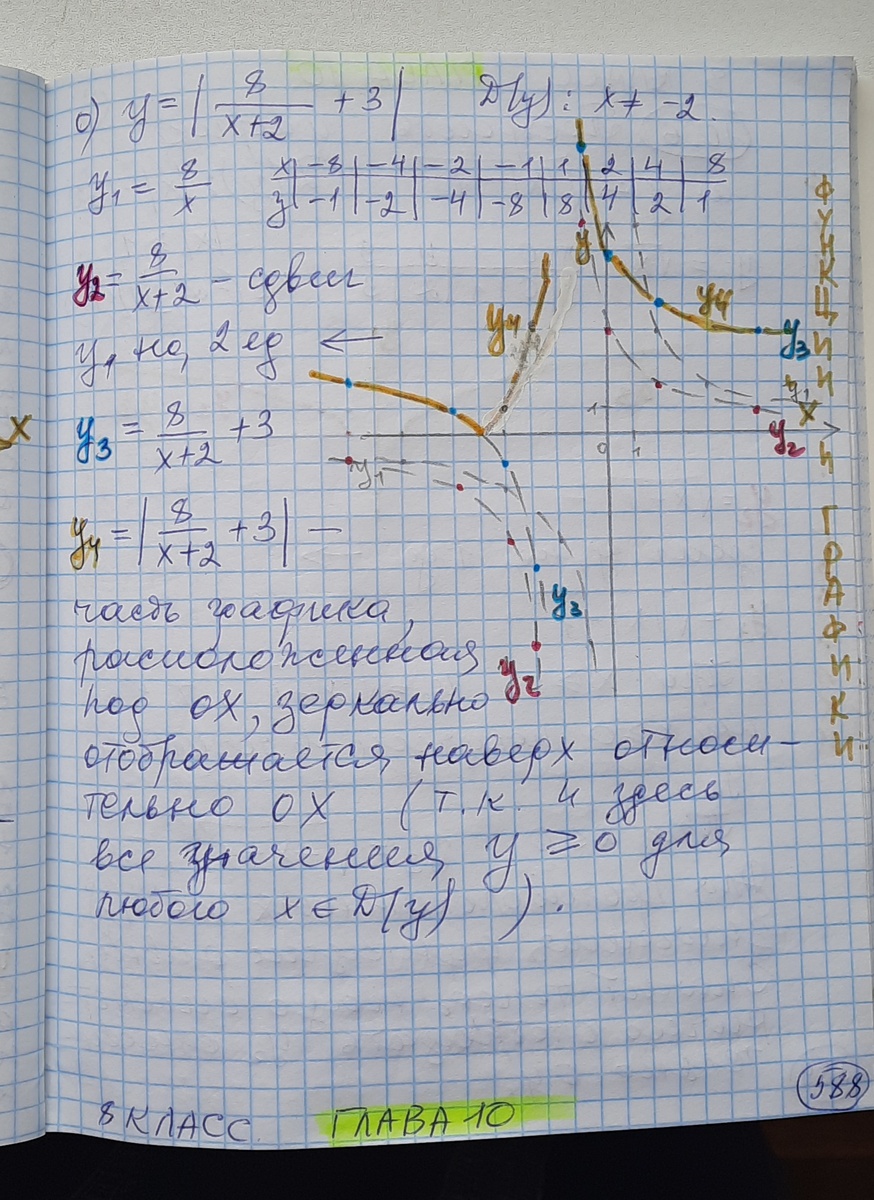 б) y = | 8/(x+2) + 3 | D(y): x ≠ -2.
y₁ = 8/x
x | -8 | -4 | -2 | -1 | 1 | 2 | 4 | 8
y | -1 | -2 | -4 | -8 | 8 | 4 | 2 | 1
y₂ = 8/(x+2) – сдвиг
y₁ на 2 ед ←
y₃ = 8/(x+2) + 3
y₄ = | 8/(x+2) + 3 | –
часть графика,
расположенная
под OX, зеркально
отображается наверх относи-
тельно OX (т.к. и здесь
все значения y ⩾ 0 для
любого x ∈ D(y) ).
y
y₄
y₄
y₃
y₁
x
y₂
1
0
1
y₁
y₃
y₂
x
ФУНКЦИИ И ГРАФИКИ
8 КЛАСС. ГЛАВА 10
588